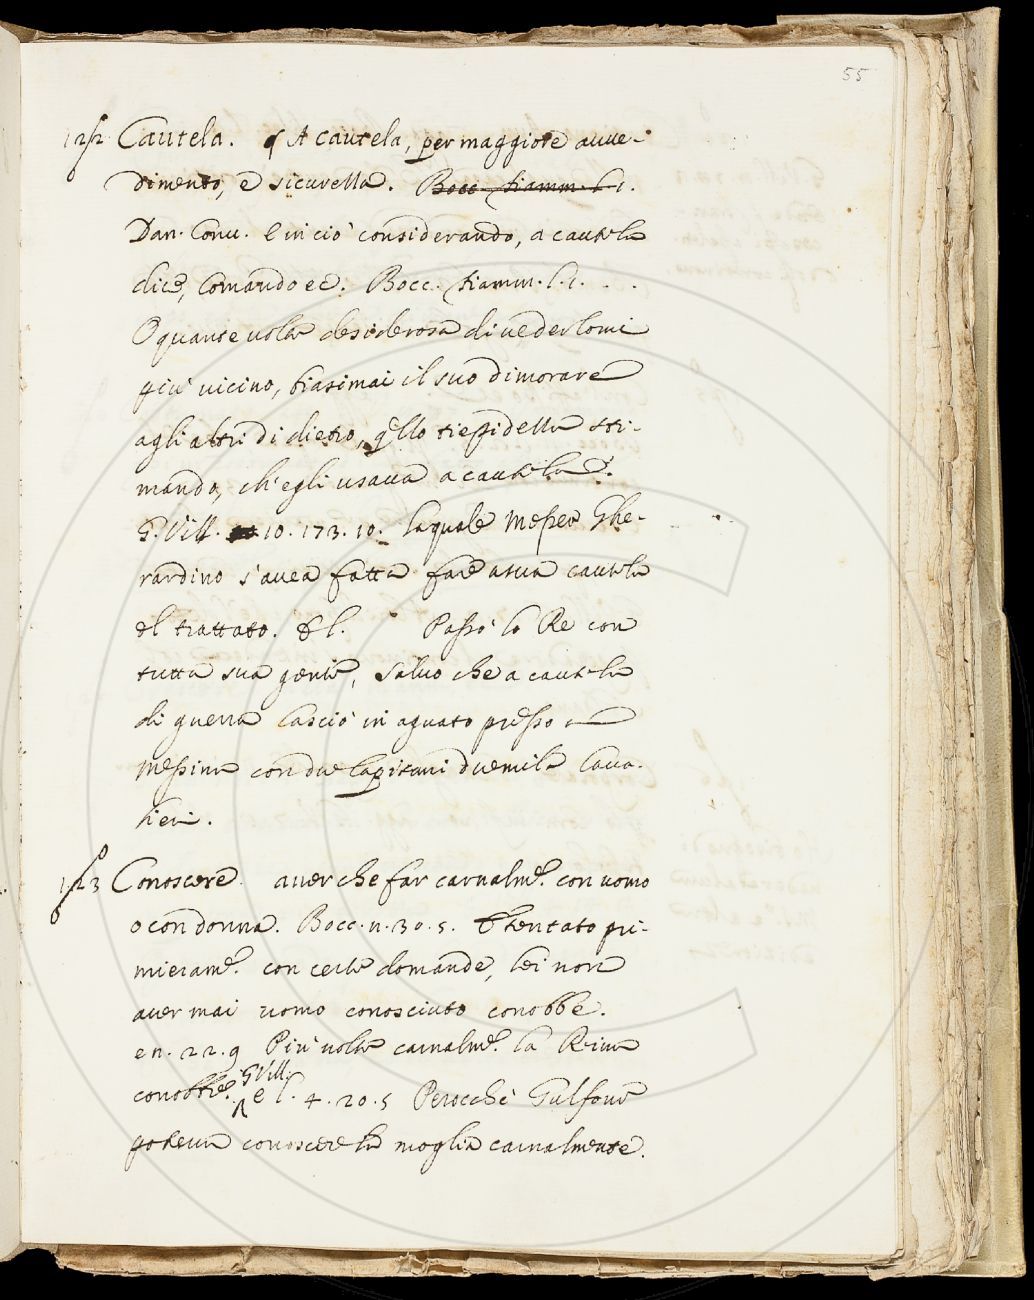 55
Cautela. § A cautela, per maggiore avve-
dimento, e sicurella. Bocc. fiamm. l. 1.
Dan. Conv. E in ciò considerando, a cautela
dice, Comando ec. Bocc. fiamm. l. 1. . .
O quante volte desiderosa di vederlomi
più vicino, biasimai il suo dimorare
agli altri di dietro, qllo tiepidella sti-
mando, ch'egli usava a cautela.
G. Vill. 10. 173. 10. laquale Messer Ghe-
rardino s'avea fatta fare a sua cautela
el trattato. Passò lo Re con
tutta sua gente, salvo che a cautela
di guerra lasciò in aguato presso a
Messina con due Capitani duemila Cava-
lieri.
Conoscere. aver che far carnalmte. con uomo
o con donna. Bocc. n. 30. 5. tentato pri-
mieramte. con certe domande, lei non
aver mai uomo conosciuto conobbe.
e n. 22. 9 Più volte carnalmte. la Reina
conobbe. G Vill. 4. 20. 5 Perocchè Gulfone
poteva conoscere la moglie carnalmente.